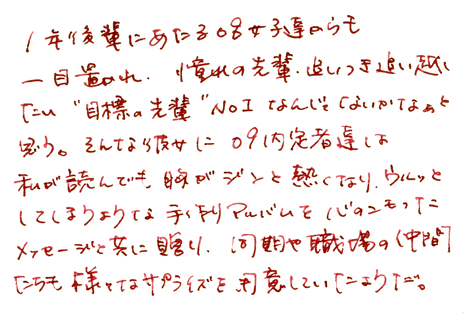 1年後輩にあたる08女子達からも
一目置かれ、憧れの先輩・追いつき追い越し
たい“目標の先輩”NO1なんじゃないかなぁと
思う。そんな彼女に09内定者達は
私が読んでも、胸がジンと熱くなり、ウルッと
してしまうような手作りアルバムを心のこもった
メッセージと共に贈り、同期や職場の仲間
たちも様々なサプライズを用意していたようだ。